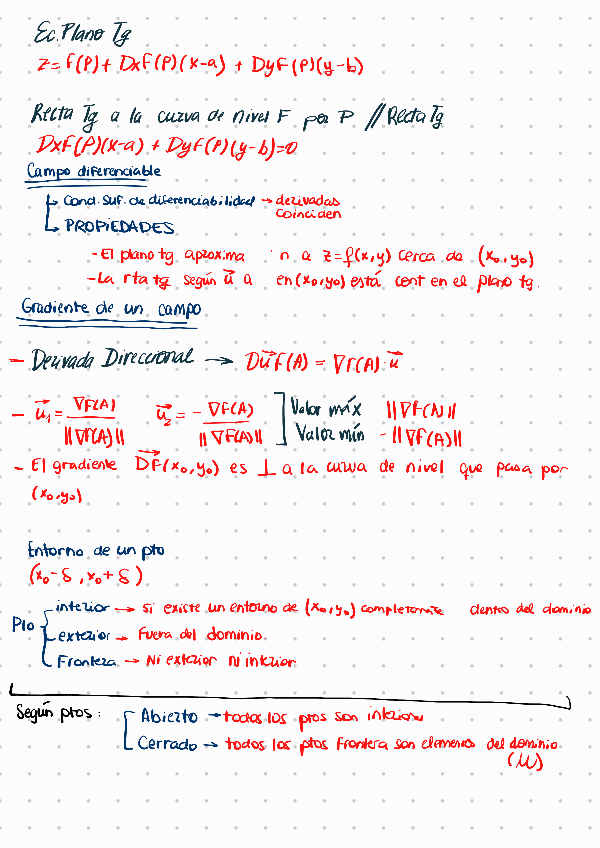 Ec. Plano Tg
z = f(P) + DxF(P)(x-a) + DyF(P)(y-b)
Recta Tg a la curva de nivel F por P // Recta Tg
DxF(P)(x-a) + DyF(P)(y-b)=0
Campo diferenciable
↳ Cond. Suf. de diferenciabilidad → derivadas
coinciden
↳ PROPIEDADES
- El plano tg aproxima n a z=f(x,y) cerca de (x₀,y₀)
- La rta tg según u⃗ a en (x₀,y₀) está cont en el plano tg.
Gradiente de un campo
- Derivada Direccional → Du⃗F(A) = ∇F(A)·u⃗
- u⃗₁ = ∇F(A) / ||∇F(A)|| u⃗₂ = - ∇F(A) / ||∇F(A)|| ] Valor máx ||∇F(A)||
Valor mín - ||∇F(A)||
- El gradiente DF(x₀,y₀) es ⊥ a la curva de nivel que pasa por
(x₀,y₀)
Entorno de un pto
(x₀-δ, x₀+δ)
Pto
interior → si existe un entorno de (x₀,y₀) completamente dentro del dominio
exterior → Fuera del dominio.
Frontera → Ni exterior ni interior
Según ptos:
Abierto → todos los ptos son interiores
Cerrado → todos los ptos frontera son elementos del dominio
(U)